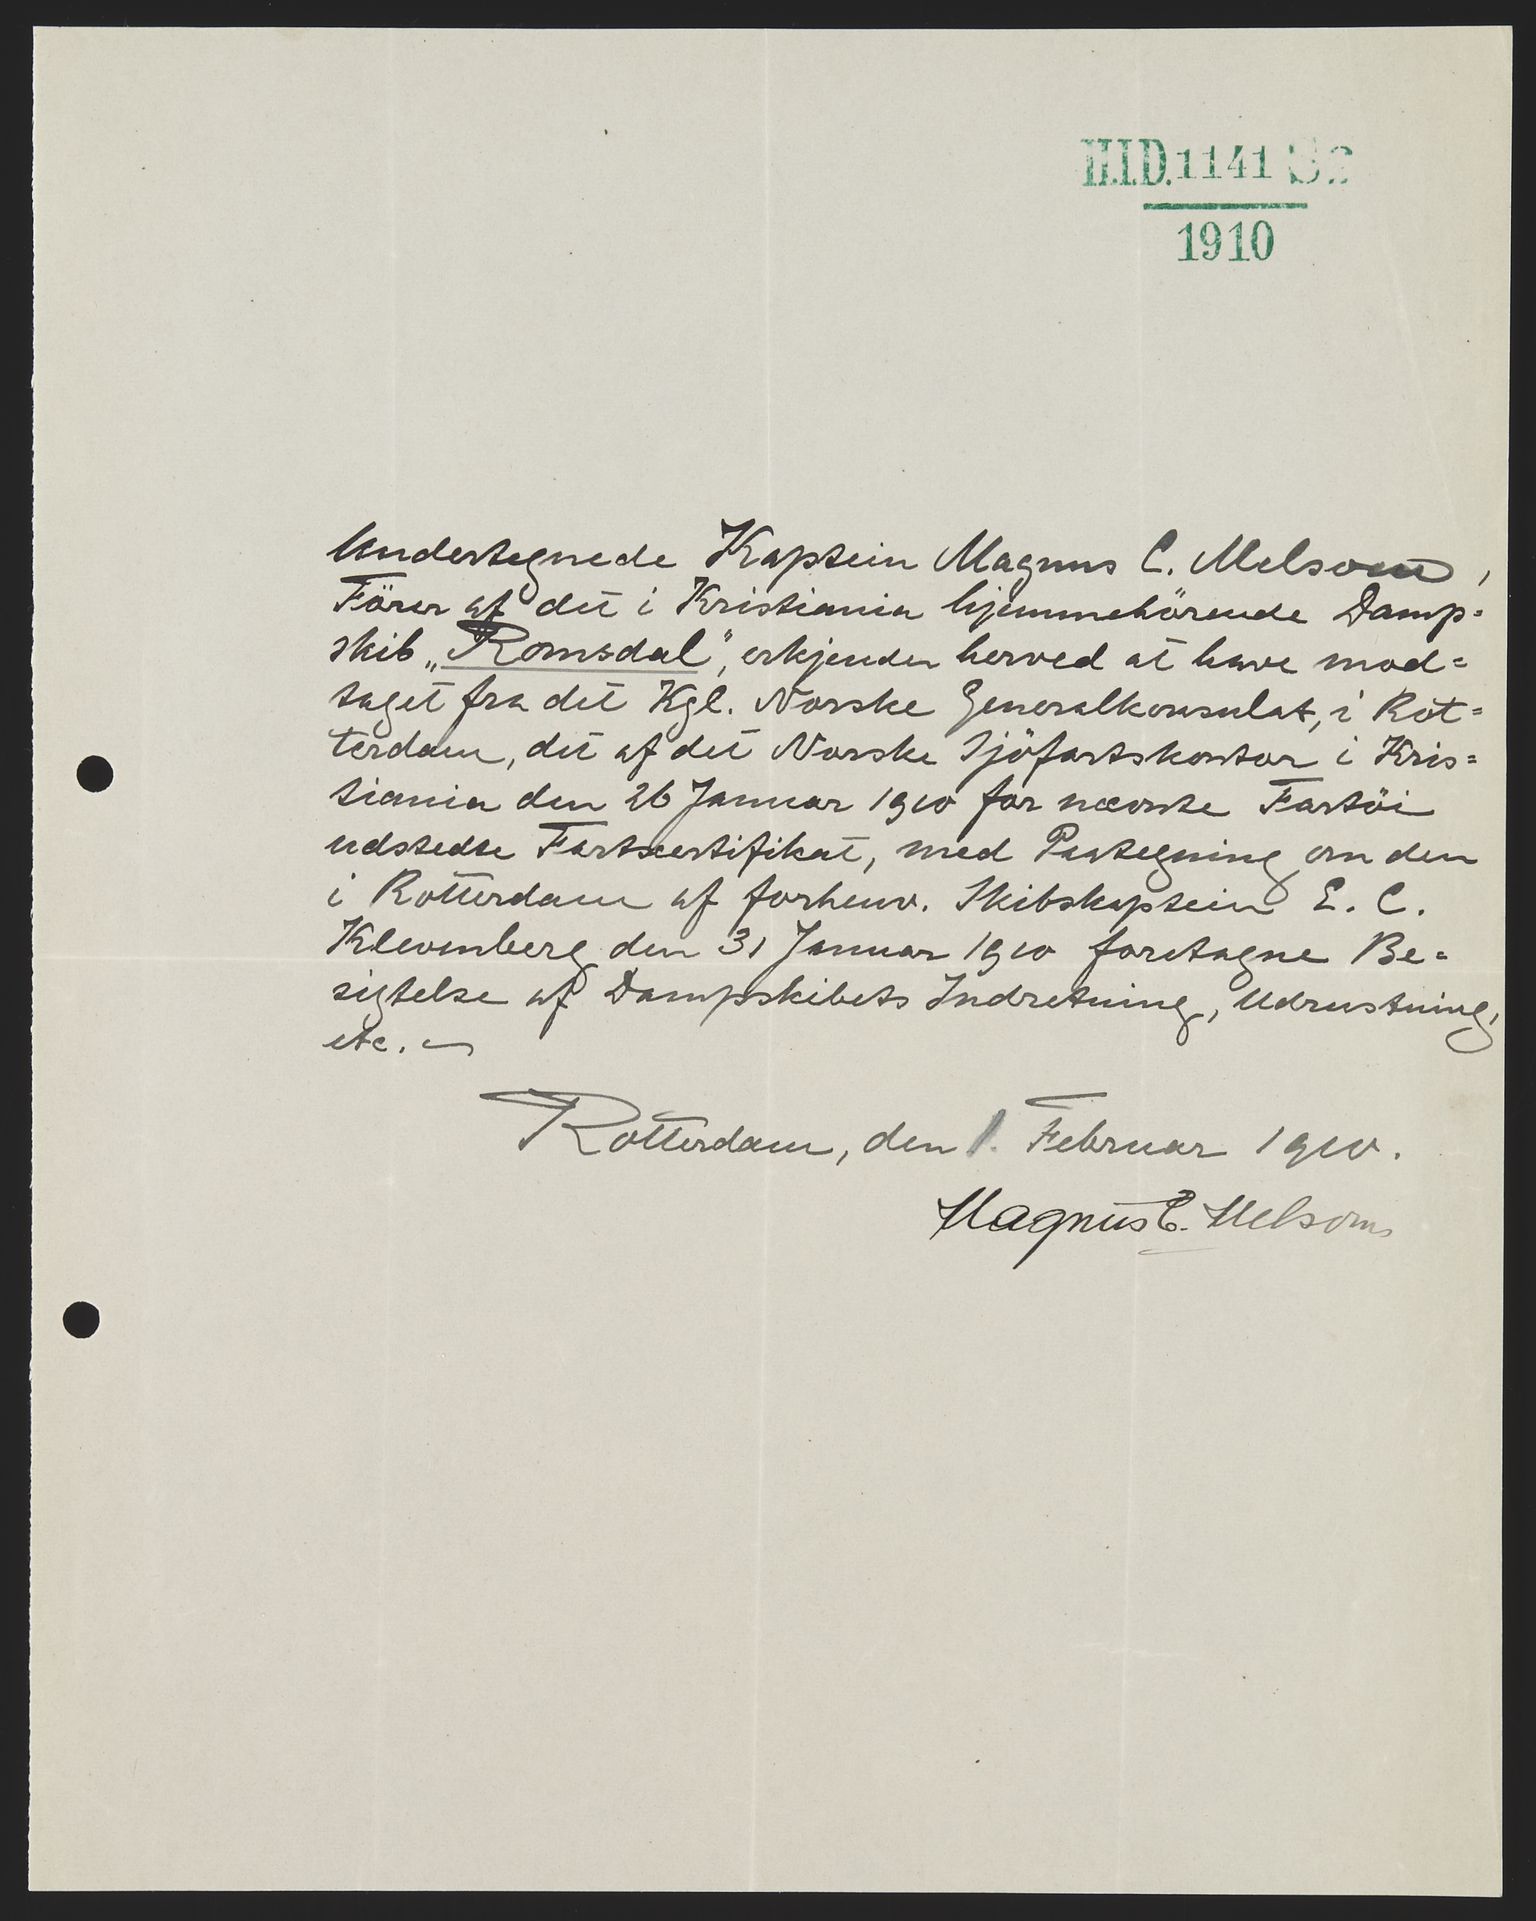 H.I.D. 1141 S2
1910
Undertegnede Kaptein Magnus C. Melsom,
Förer af det i Kristiania hjemmehörende Damp=
skib „Romsdal", erkjender herved at have mod=
taget fra det Kgl. Norske Generalkonsulat, i Rot=
terdam, det af det Norske Sjöfartskontor i Kris=
tiania den 26 Januar 1910 for nævnte Fartöi
udstedte Fartscertifikat, med Paategning om den
i Rotterdam af forhenv. Skibskaptein E. C.
Klevenberg den 31 Januar 1910 foretagne Be=
sigtelse af Dampskibets Indretning, Udrustning,
etc.
Rotterdam, den 1. Februar 1910.
Magnus C. Melsom